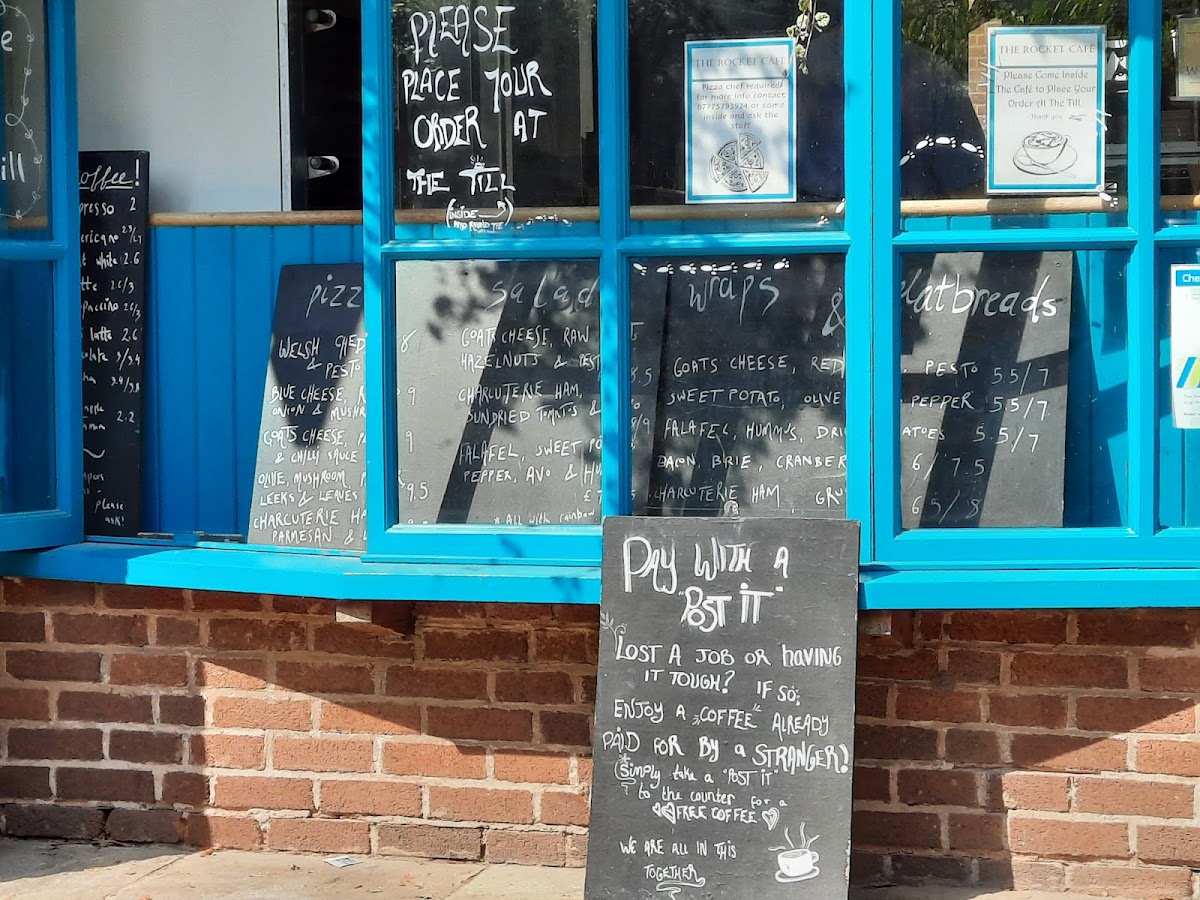 PLEASE
PLACE YOUR
ORDER AT
THE TILL
(INSIDE
THE ROCKET CAFÉ
Pizza chef required
for more info contact
07775793924 or come
inside and ask the
staff
THE ROCKET CAFÉ
Please Come Inside
The Café to Place Your
Order At The Till.
Thank you
ill
offee!
presso 2
ericano 2.3/2.7
t white 2.6
tte 2.6/3
ppaccino 2.6/3
i latte 2.6
olate 3/3.4
ha
2.2
please
ask!
pizz
WELSH CHED 8
& PESTO
BLUE CHEESE, R 9
ONION & MUSHR
GOATS CHEESE, P 9
& CHILLY SAUCE
OLIVE, MUSHROOM P 9.5
LEEKS & LEAVES
CHARCUTERIE HA 9.5
PARMESAN &
Salad
GOATS CHEESE, RAW
HAZELNUTS & PEST 8.5
CHARCUTERIE HAM,
SUNDRIED TOMTO'S &
FALAFEL, SWEET PO
PEPPER, AVO & HU
£7
*ALL with rainbow
wraps & flatbreads
GOATS CHEESE, RED , PESTO 5.5/7
SWEET POTATO, OLIVE PEPPER 5.5/7
FALAFEL, HUMM'S, DRI ATOES 5.5/7
BACON, BRIE, CRANBER 6/7.5
CHARCUTERIE HAM, GRU 6.5/8
Che
PAY WITH A
"POST IT"
LOST A JOB OR HAVING
IT TOUGH? IF SO;
ENJOY A COFFEE ALREADY
PAID FOR BY A STRANGER!
(Simply take a "POST IT"
to the counter for a
FREE COFFEE
WE ARE ALL IN THIS
TOGETHER